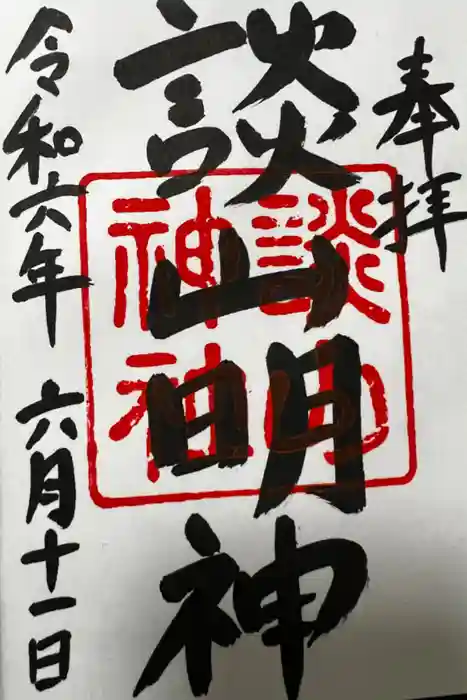 奉拝
談山明神
談山神社
令和六年六月十一日